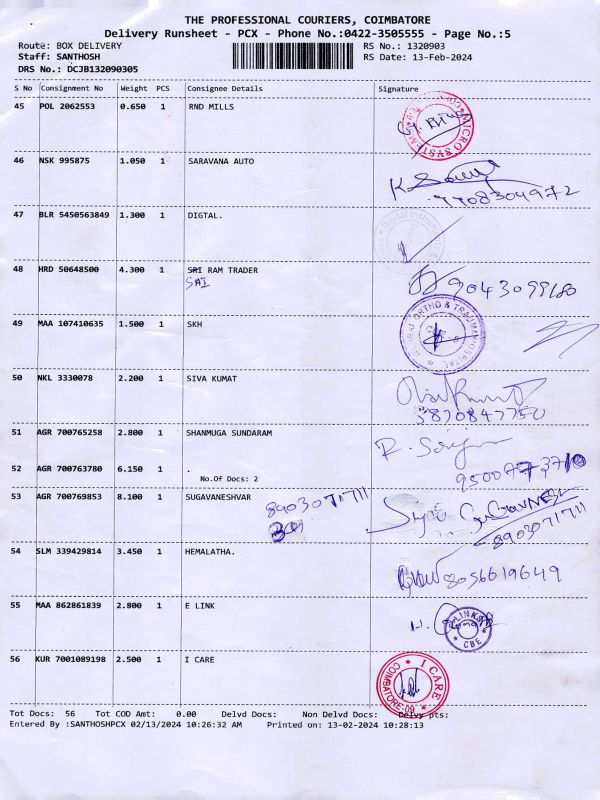 THE PROFESSIONAL COURIERS, COIMBATORE
Delivery Runsheet - PCX - Phone No.:0422-3505555 - Page No.:5
Route: BOX DELIVERY RS No.: 1320903
Staff: SANTHOSH RS Date: 13-Feb-2024
DRS No.: DCJB132090305
S No Consignment No Weight PCS Consignee Details Signature
45 POL 2062553 0.650 1 RND MILLS
46 NSK 995875 1.050 1 SARAVANA AUTO
9708304972
47 BLR 5450563849 1.300 1 DIGTAL.
48 HRD 50648500 4.300 1 SRI RAM TRADER
SAI
49 MAA 107410635 1.500 1 SKH
ORTHO & TRAUMA
50 NKL 3330078 2.200 1 SIVA KUMAT
51 AGR 700765258 2.800 1 SHANMUGA SUNDARAM
52 AGR 700763780 6.150 1 .
No.Of Docs: 2
53 AGR 700769853 8.100 1 SUGAVANESHVAR 8903071711
8903071711
54 SLM 339429814 3.450 1 HEMALATHA.
8056619649
55 MAA 862861839 2.800 1 E LINK
CBE
56 KUR 7001089198 2.500 1 I CARE
I CARE
COIMBATORE-09
Tot Docs: 56 Tot COD Amt: 0.00 Delvd Docs: Non Delvd Docs: Delvy pts:
Entered By :SANTHOSHPCX 02/13/2024 10:26:32 AM Printed on: 13-02-2024 10:28:13